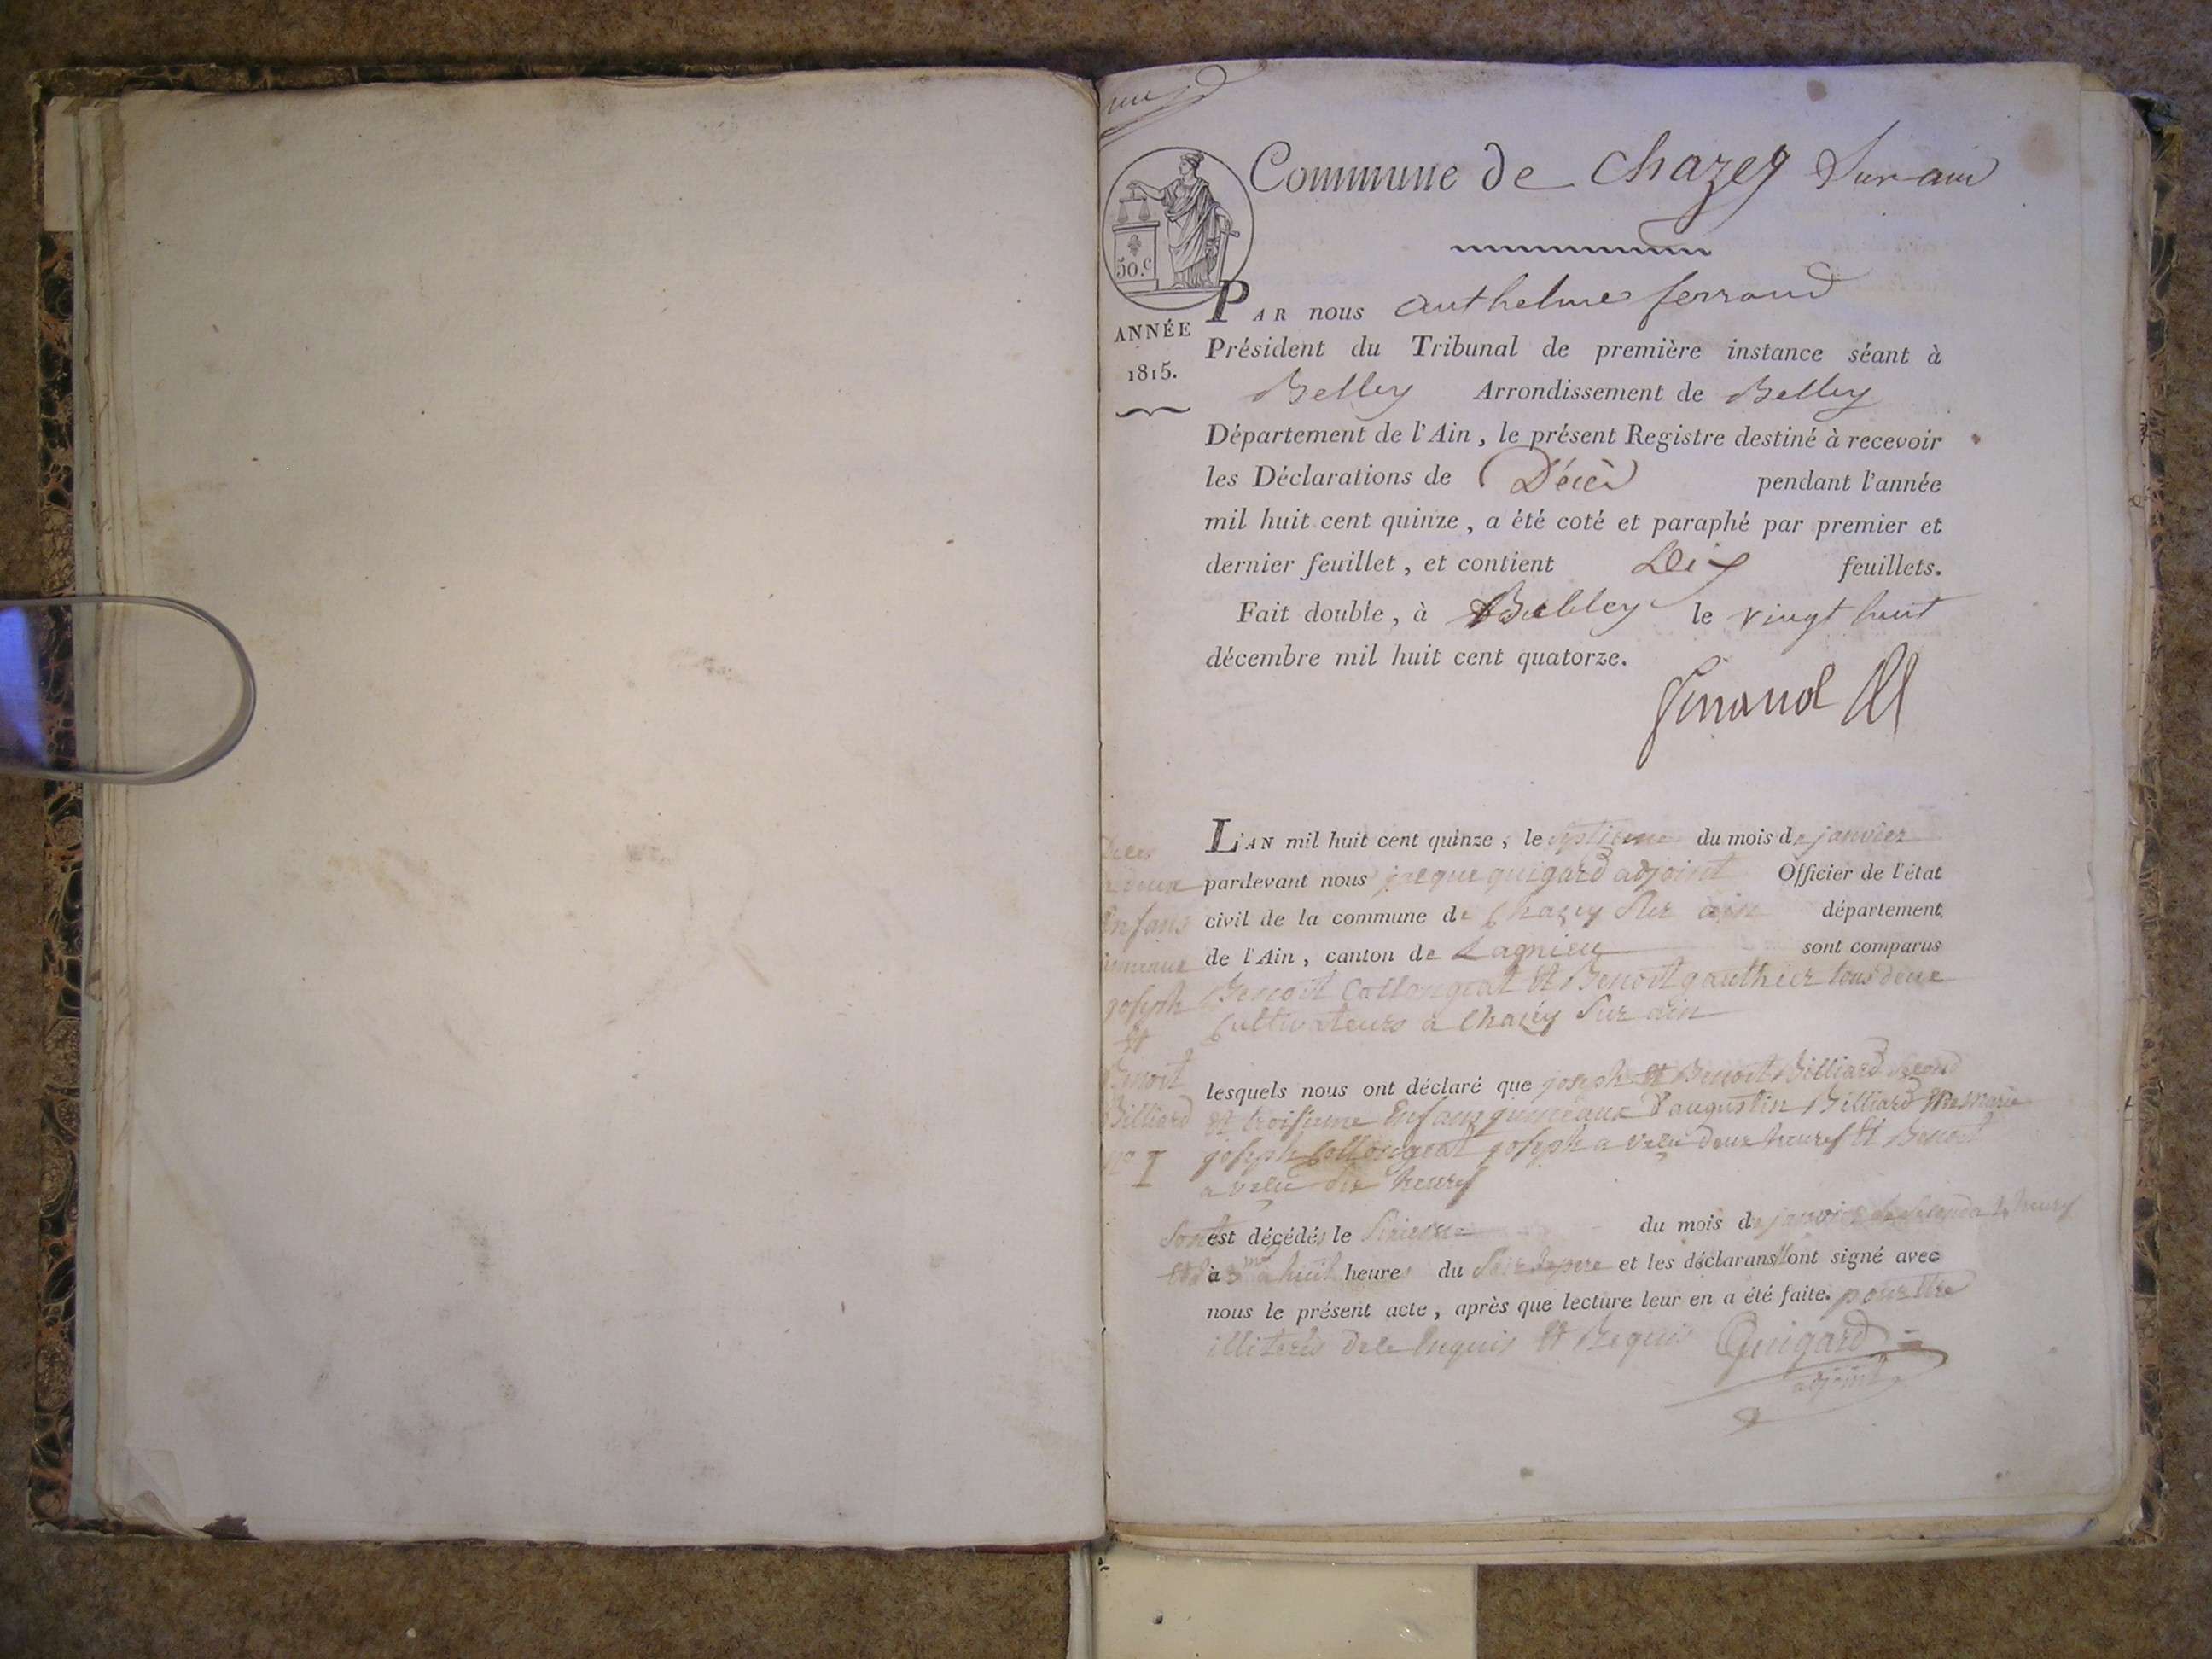 Commune de Chazey Sur ain
50.c
ANNÉE
1815.
PAR nous Anthelme ferrand
Président du Tribunal de première instance séant à
Belley Arrondissement de Belley
Département de l'Ain, le présent Registre destiné à recevoir
les Déclarations de Décès pendant l'année
mil huit cent quinze, a été coté et paraphé par premier et
dernier feuillet, et contient Dix feuillets.
Fait double, à Belley le vingt huit
décembre mil huit cent quatorze.
ferrand
Deces
deux
Enfans
jumeaux
joseph
et
Benoit
Billiard
no I
L'AN mil huit cent quinze, le septieme du mois de janvier
pardevant nous jacque guigard adjoint Officier de l'état
civil de la commune de Chazey Sur ain département
de l'Ain, canton de Lagnieu sont comparus
Benoit Collongeat et Benoit gauthier tous deux
Cultivateurs a Chazey Sur ain
lesquels nous ont déclaré que joseph et Benoit Billiard second
et troisieme Enfans gumeaux d'augustin Billiard et de marie
joseph Collongeat joseph a vecu deux heures et Benoit
a vecu dix heures
Sont est décédés le du mois de janvier
à huit heures du Soir et les déclarans ont signé avec
nous le présent acte, après que lecture leur en a été faite. pour être
illiterés de ce Enquis et Requis Guigard
adjoint